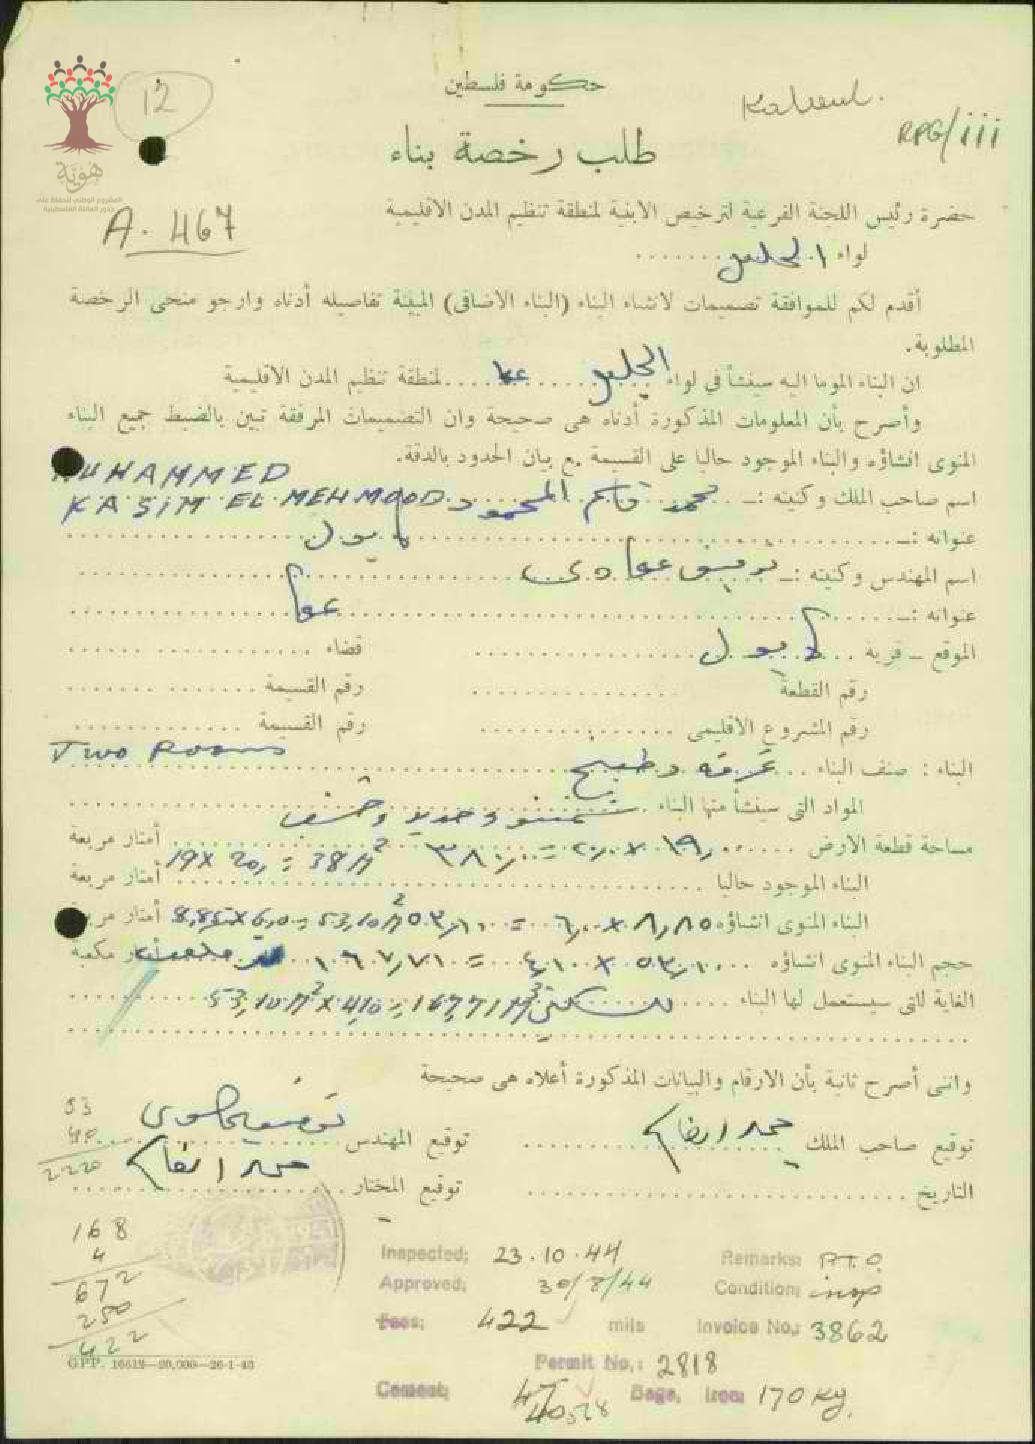 12
حكومة فلسطين
RPG/iii
طلب رخصة بناء
هوية
المشروع الوطني للحفاظ على
جذور العائلة الفلسطينية
A. 467
حضرة رئيس اللجنة الفرعية لترخيص الابنية لمنطقة تنظيم المدن الاقليمية
لواء الجليل
أقدم لكم للموافقة تصميمات لانشاء البناء (البناء الاضافى) المبينة تفاصيله أدناه وارجو منحى الرخصة
المطلوبة.
ان البناء الموما اليه سينشأ في لواء الجليل عكا لمنطقة تنظيم المدن الاقليمية
وأصرح بأن المعلومات المذكورة أدناه هى صحيحة وان التصميمات المرفقة تبين بالضبط جميع البناء
المنوى انشاؤه والبناء الموجود حاليا على القسيمة مع بيان الحدود بالدقة.
MUHAMMED
اسم صاحب الملك وكنيته :ـ محمد قاسم المحمود KASIM EL MEHMOOD
عنوانه :ـ كابول
اسم المهندس وكنيته :ـ
عنوانه :ـ عكا
الموقع ـ قرية كابول قضاء
رقم القطعة رقم القسيمة
رقم المشروع الاقليمى رقم القسيمة
Two Rooms
البناء : صنف البناء غرفه ومطبخ
المواد التى سينشأ منها البناء شمنتو وحديد وخشب
مساحة قطعة الارض ١٩,٠٠ × ٢٠,٠٠ = ٣٨٠,٠٠ أمتار مربعة
البناء الموجود حاليا أمتار مربعة
البناء المنوى انشاؤه ٨,٨٥ × ٦,٠٠ = ٥٣,١٠ 8,85 x 6,0 = 53,10 M² أمتار مربعة
حجم البناء المنوى انشاؤه ٥٣,١٠ × ٤,١٠ = أمتار مكعبة
الغاية التى سيستعمل لها البناء للسكنى
وانى أصرح ثانية بأن الارقام والبيانات المذكورة أعلاه هى صحيحة
توقيع صاحب الملك توقيع المهندس
التاريخ توقيع المختار
53
40
2220
168
4
672
250
422
Inspected; 23.10.44 Remarks: P.T.O.
Approved; 30/8/44 Condition;
Fees; 422 mils Invoice No,: 3862
G.P.P. 16612—20,000—26-1-43
Permit No,: 2818
Cement; Bags, Iron: 170 Kg.